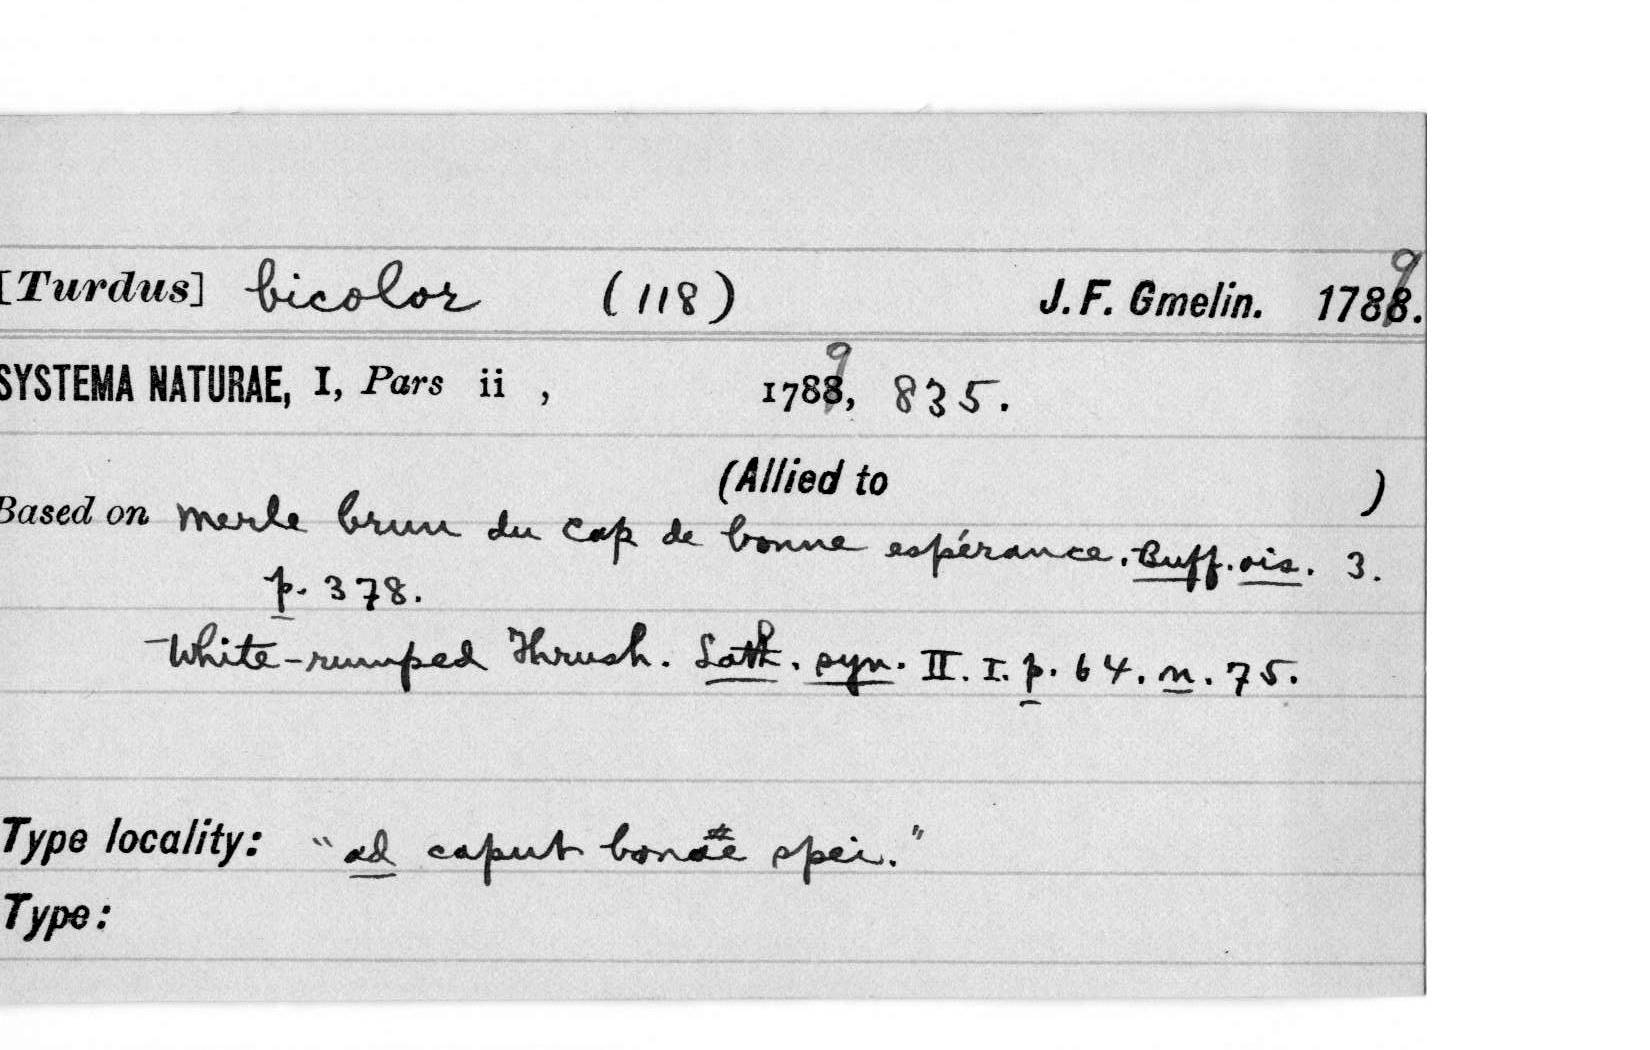 [Turdus] bicolor (118) J. F. Gmelin. 1789.
SYSTEMA NATURAE, I, Pars ii , 1789, 835.
(Allied to )
Based on merle brun du cap de bonne espérance. Buff. ois. 3.
p. 378.
White-rumped Thrush. Lath. syn. II. I. p. 64. n. 75.
Type locality: "ad caput bonae spei."
Type: